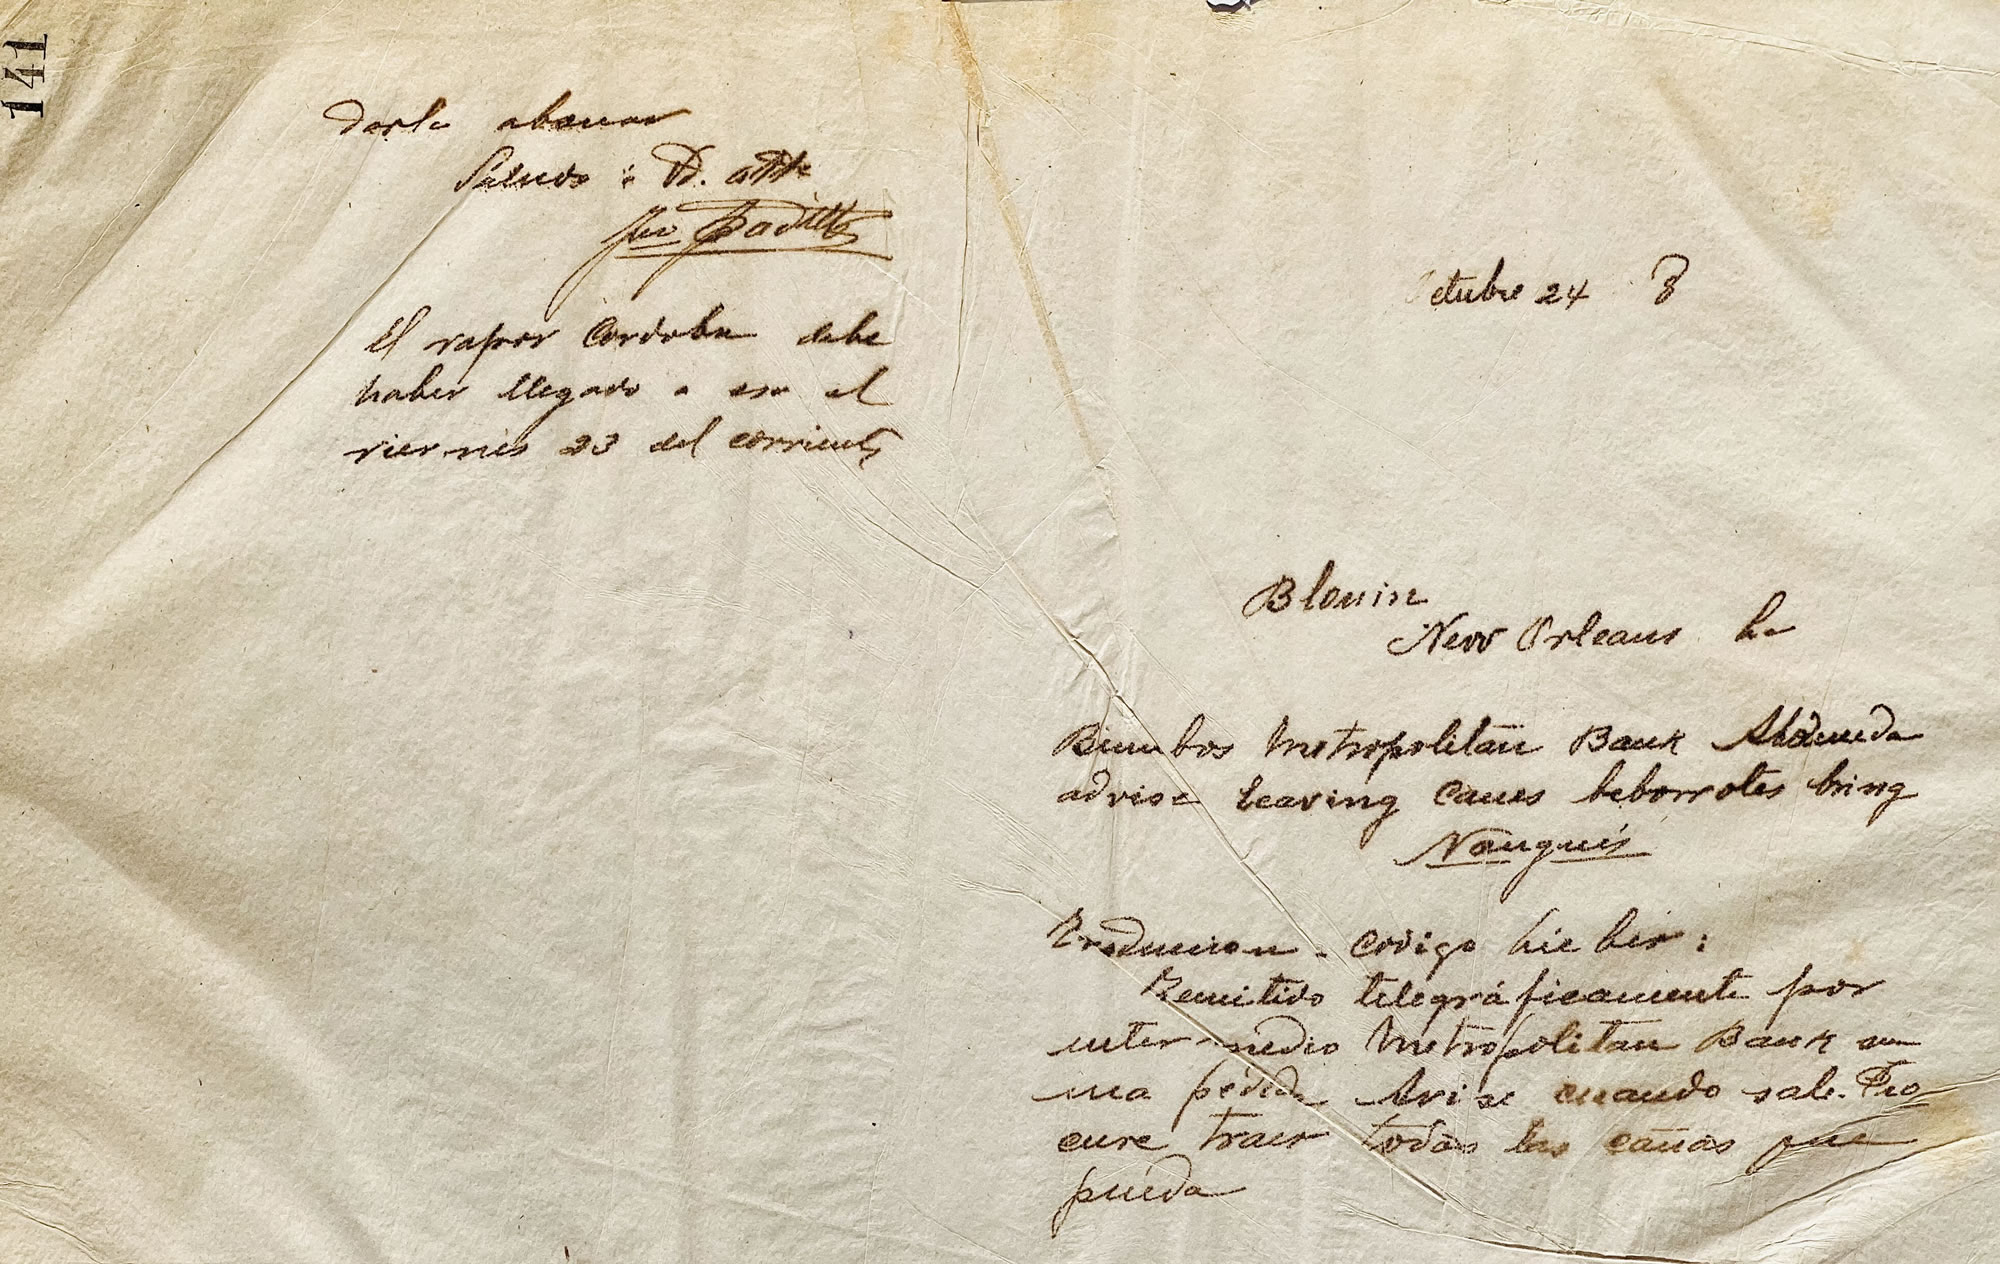 141
darle abonar
Saludo á Vd. atte
Jno Padilla
El vapor Cordoba debe
haber llegado a esa el
viernes 23 del corriente
Octubre 24 8
Blouin
New Orleans La
Bimbos Metropolitan Bank
advise leaving canes beborrotes bring
Nougués
Traduccion - Codigo Lieber:
Remitido telegráficamente por
intermedio Metropolitan Bank
ma pedida Avise cuando sale. Pro
cure traer todas las cañas que
pueda